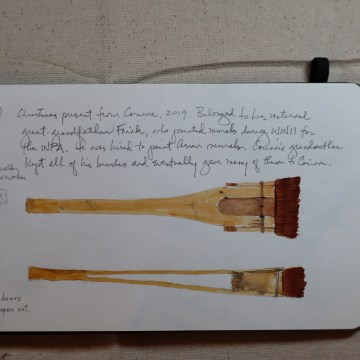 Christmas present from Corinne, 2019. Belonged to her maternal
great-grandfather Frisk, who painted murals during WWII for
the WPA. He was hired to paint Asian murals. Corinne's grandmother
kept all of his brushes and eventually gave many of them to Corinne.
doors
open out.